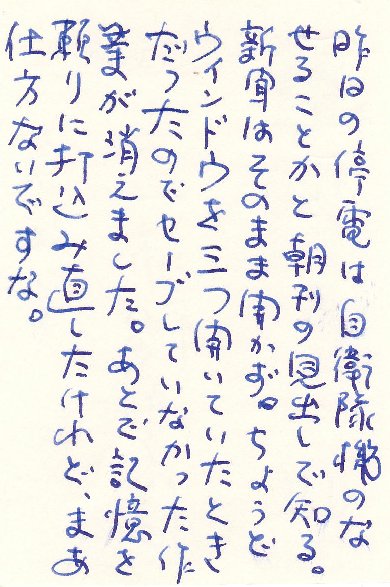 昨日の停電は自衛隊機のな
せることかと朝刊の見出しで知る。
新聞はそのまま開かず。ちょうど
ウインドウを三つ開いていたとき
だったのでセーブしていなかった作
業が消えました。あとで記憶を
頼りに打込み直したけれど、まあ
仕方ないですな。